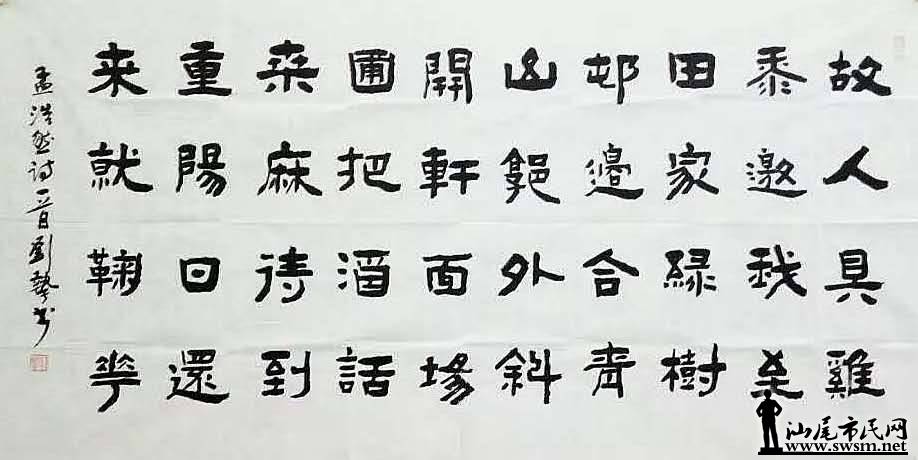 故人具雞
黍邀我至
田家緑樹
邨邊合青
山郭外斜
開軒面場
圃把酒話
桒麻待到
重陽日還
来就鞠華
孟浩然诗 劉 书
汕尾市民网
www.swsm.net